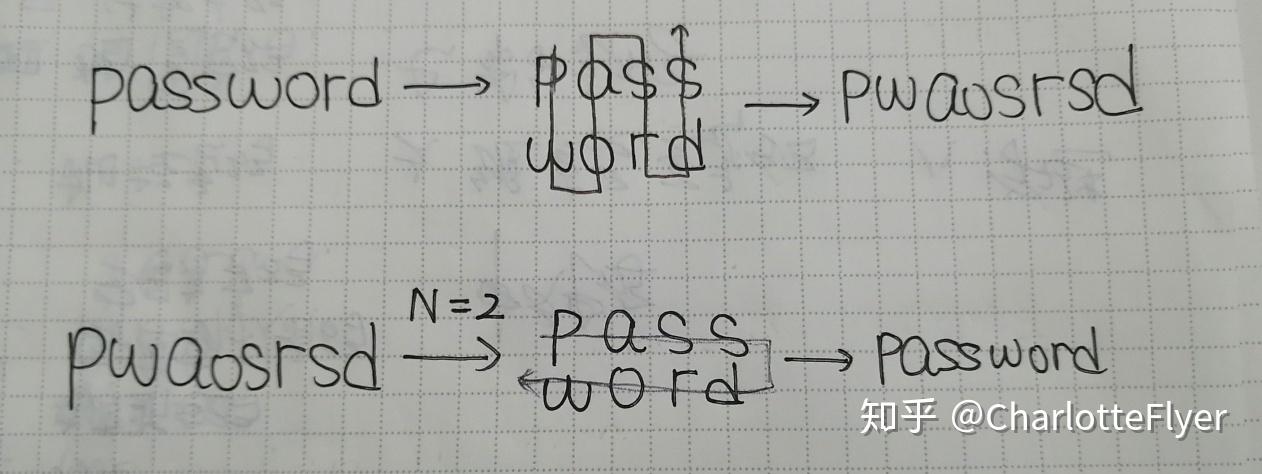 password → pass → pwaosrsd
word
N=2
pwaosrsd → pass → password
word
知乎 @CharlotteFlyer